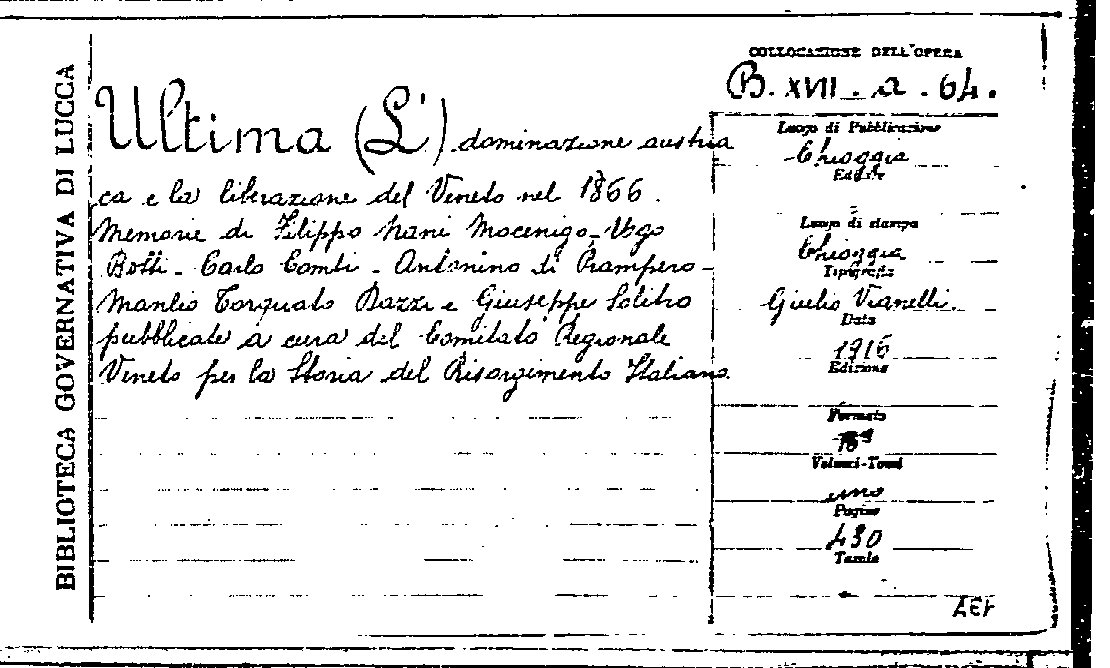 BIBLIOTECA GOVERNATIVA DI LUCCA
COLLOCAZIONE DELL'OPERA
B. XVII. a. 64.
Ultima (L') dominazione austria
ca e la liberazione del Veneto nel 1866.
Memorie di Filippo Nani Mocenigo - Ugo
Botti - Carlo Combi - Antonino di Prampero -
Manlio Torquato Dazzi e Giuseppe Solitro
pubblicate a cura del Comitato Regionale
Veneto per la Storia del Risorgimento Italiano.
Luogo di Pubblicazione
Chioggia
Editore
Luogo di stampa
Chioggia
Tipografia
Giulio Vianelli.
Data
1916
Edizione
Formato
Volumi-Tomi
uno
Pagine
430
Tavole